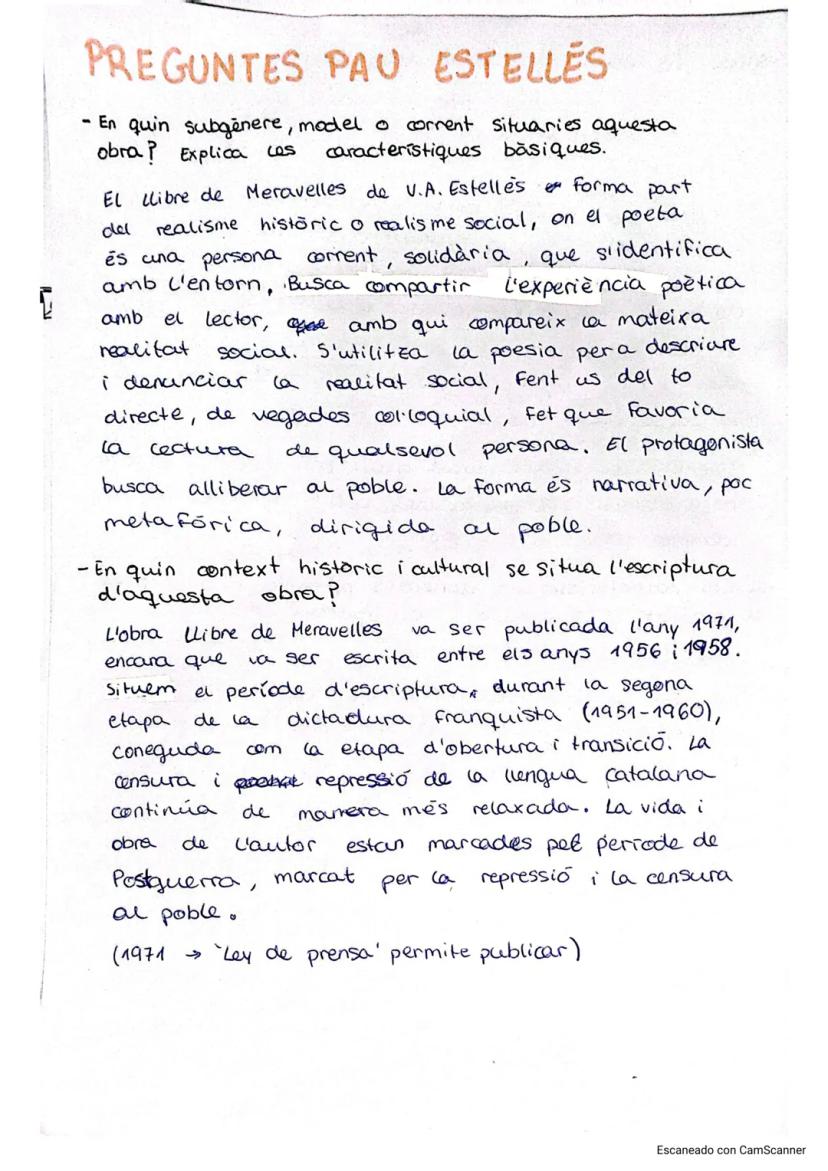 PREGUNTES PAU ESTELLÉS
- En quin subgènere, model o corrent situaries aquesta
obra? Explica les característiques bàsiques.
El Llibre de Meravelles de V.A. Estellés forma part
del realisme històric o realisme social, on el poeta
és una persona corrent, solidària, que s'identifica
amb l'entorn. Busca compartir l'experiència poètica
amb el lector, amb qui compareix la mateixa
realitat social. S'utilitza la poesia per a descriure
i denunciar la realitat social, fent us del to
directe, de vegades col·loquial, fet que favoria
la lectura de qualsevol persona. El protagonista
busca alliberar al poble. La forma és narrativa, poc
metafòrica, dirigida al poble.
- En quin context històric i cultural se situa l'escriptura
d'aquesta obra?
L'obra Llibre de Meravelles va ser publicada l'any 1971,
encara que va ser escrita entre els anys 1956 i 1958.
Situem el període d'escriptura, durant la segona
etapa de la dictadura franquista (1951-1960),
coneguda com la etapa d'obertura i transició. La
censura i repressió de la llengua catalana
continúa de manera més relaxada. La vida i
obra de l'autor estan marcades pel període de
Postguerra, marcat per la repressió i la censura
al poble.
(1971 → 'Ley de prensa' permite publicar)
Escaneado con CamScanner